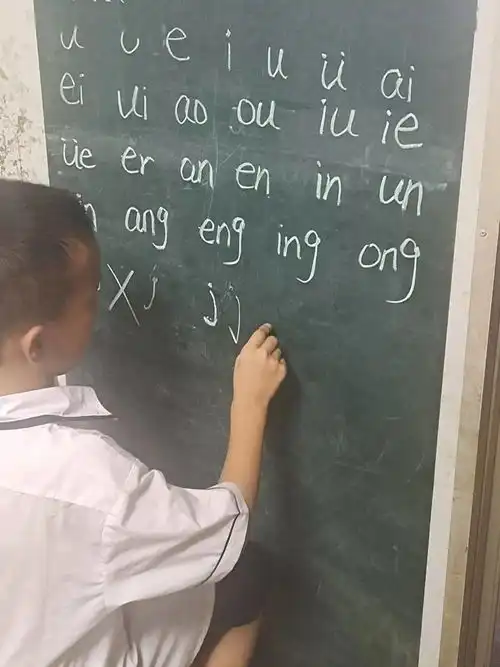 u o e i u ü ai
ei ui ao ou iu ie
üe er an en in un
ang eng ing ong
X j j j